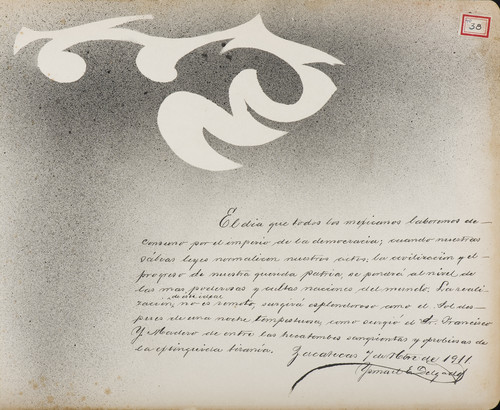 38
El dia que todos los mexicanos laboremos de
consuno por el imperio de la democracia; cuando nuestras
sabias leyes normalicen nuestros actos; la civilizacion y el
progreso de nuestra querida patria, se pondrá al nivel de
las mas poderosas y cultas naciones del mundo. La reali-
de este ideal
zación, no es remota, surgirá esplendoroso como el Sol des-
pues de una noche tempestuosa, como surgió el Sr. Francisco
Y. Madero de entre las hecatombes sangrientas y
de la extinguida tiranía. Zacatecas 7 de de 1911.
Ysmael E. Delgado